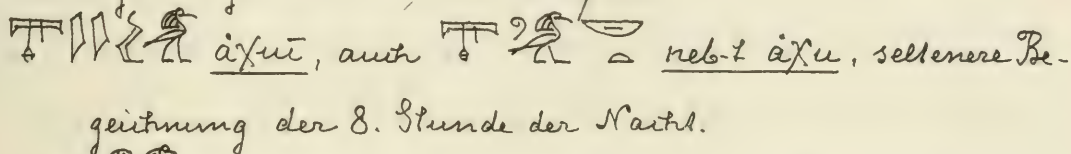 ȧχuī, auch neb-t ȧχu, seltenere Be-
zeichnung der 8. Stunde der Nacht.